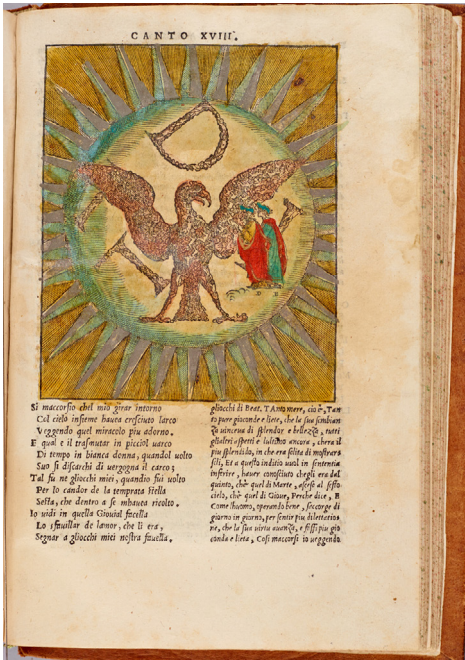 CANTO XVIII.
D
I
L
D B
Si maccorsio chel mio girar intorno
Col cielo insieme hauea cresciuto larco
Veggendo quel miracolo piu adorno.
E qual e il trasmutar in picciol uarco
Di tempo in bianca donna, quandol uolto
Suo si discarchi di uergogna il carco;
Tal fu ne gliocchi miei, quando fui uolto
Per lo candor de la temprata stella
Sesta, che dentro a se mhauea ricolto.
Io uidi in quella Giouial facella
Lo sfauillar de lamor, che li era,
Segnar a gliocchi miei nostra fauella.
gliocchi di Beat. TAnto mere, cio è, Tan
to pure gioconde e liete, che la sua sembian
za uinceua di splendor e bellezza, tutti
glialtri aspetti e lultimo ancora, chera il
piu splendido, in che era solita di mostrars
sili, Et a questo inditio uuol in sententia
inferire, hauer conosciuto chegli era dal
quinto, che quel di Marte, asceso al sesto
cielo, che quel di Gioue, Perche dice, E
Come lhuomo, operando bene, saccorge di
giorno in giorno, per sentir piu dilettatio
ne, che la sua uirtu auanza, e fassi piu gio
conda e lieta, Cosi maccorsi io ueggendo